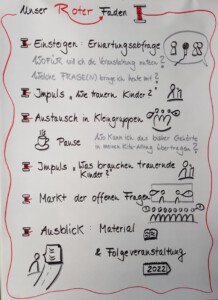 Unser Roter Faden
Einstiegen: Erwartungsabfrage
WOFÜR will ich die Veranstaltung nutzen?
Welche FRAGE(N) bringe ich heute mit?
Impuls "Wie trauern Kinder?"
Austausch in Kleingruppen
Pause
Wo kann ich das bisher Gehörte
in meinen Kitaalltag übertragen?
Impuls "Was brauchen trauernde
Kinder?"
Markt der offenen Fragen
Ausblick: Material
& Folgeveranstaltung
2022